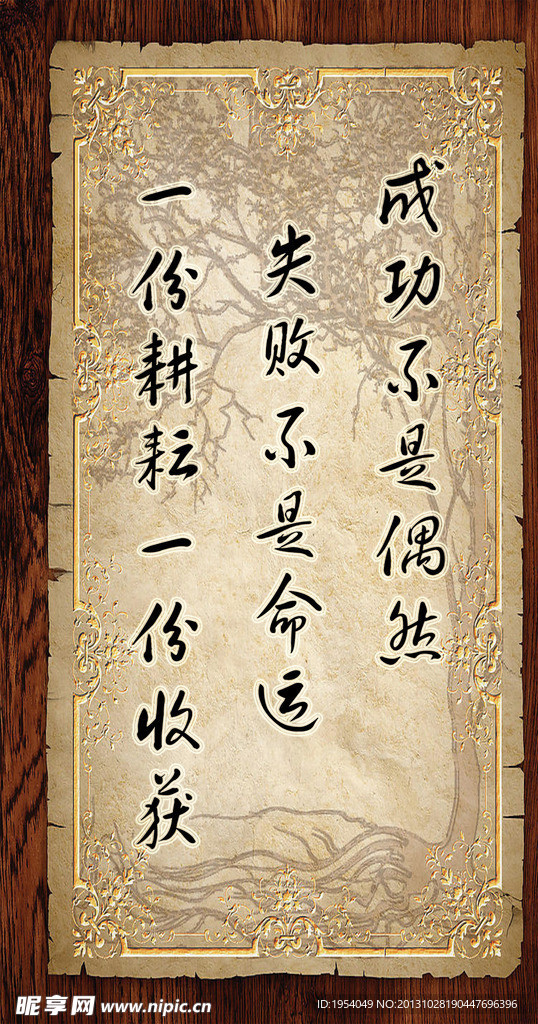 成功不是偶然
失败不是命运
一份耕耘一份收获
昵享网 www.nipic.cn
ID:1954049 NO:20131028190447696396